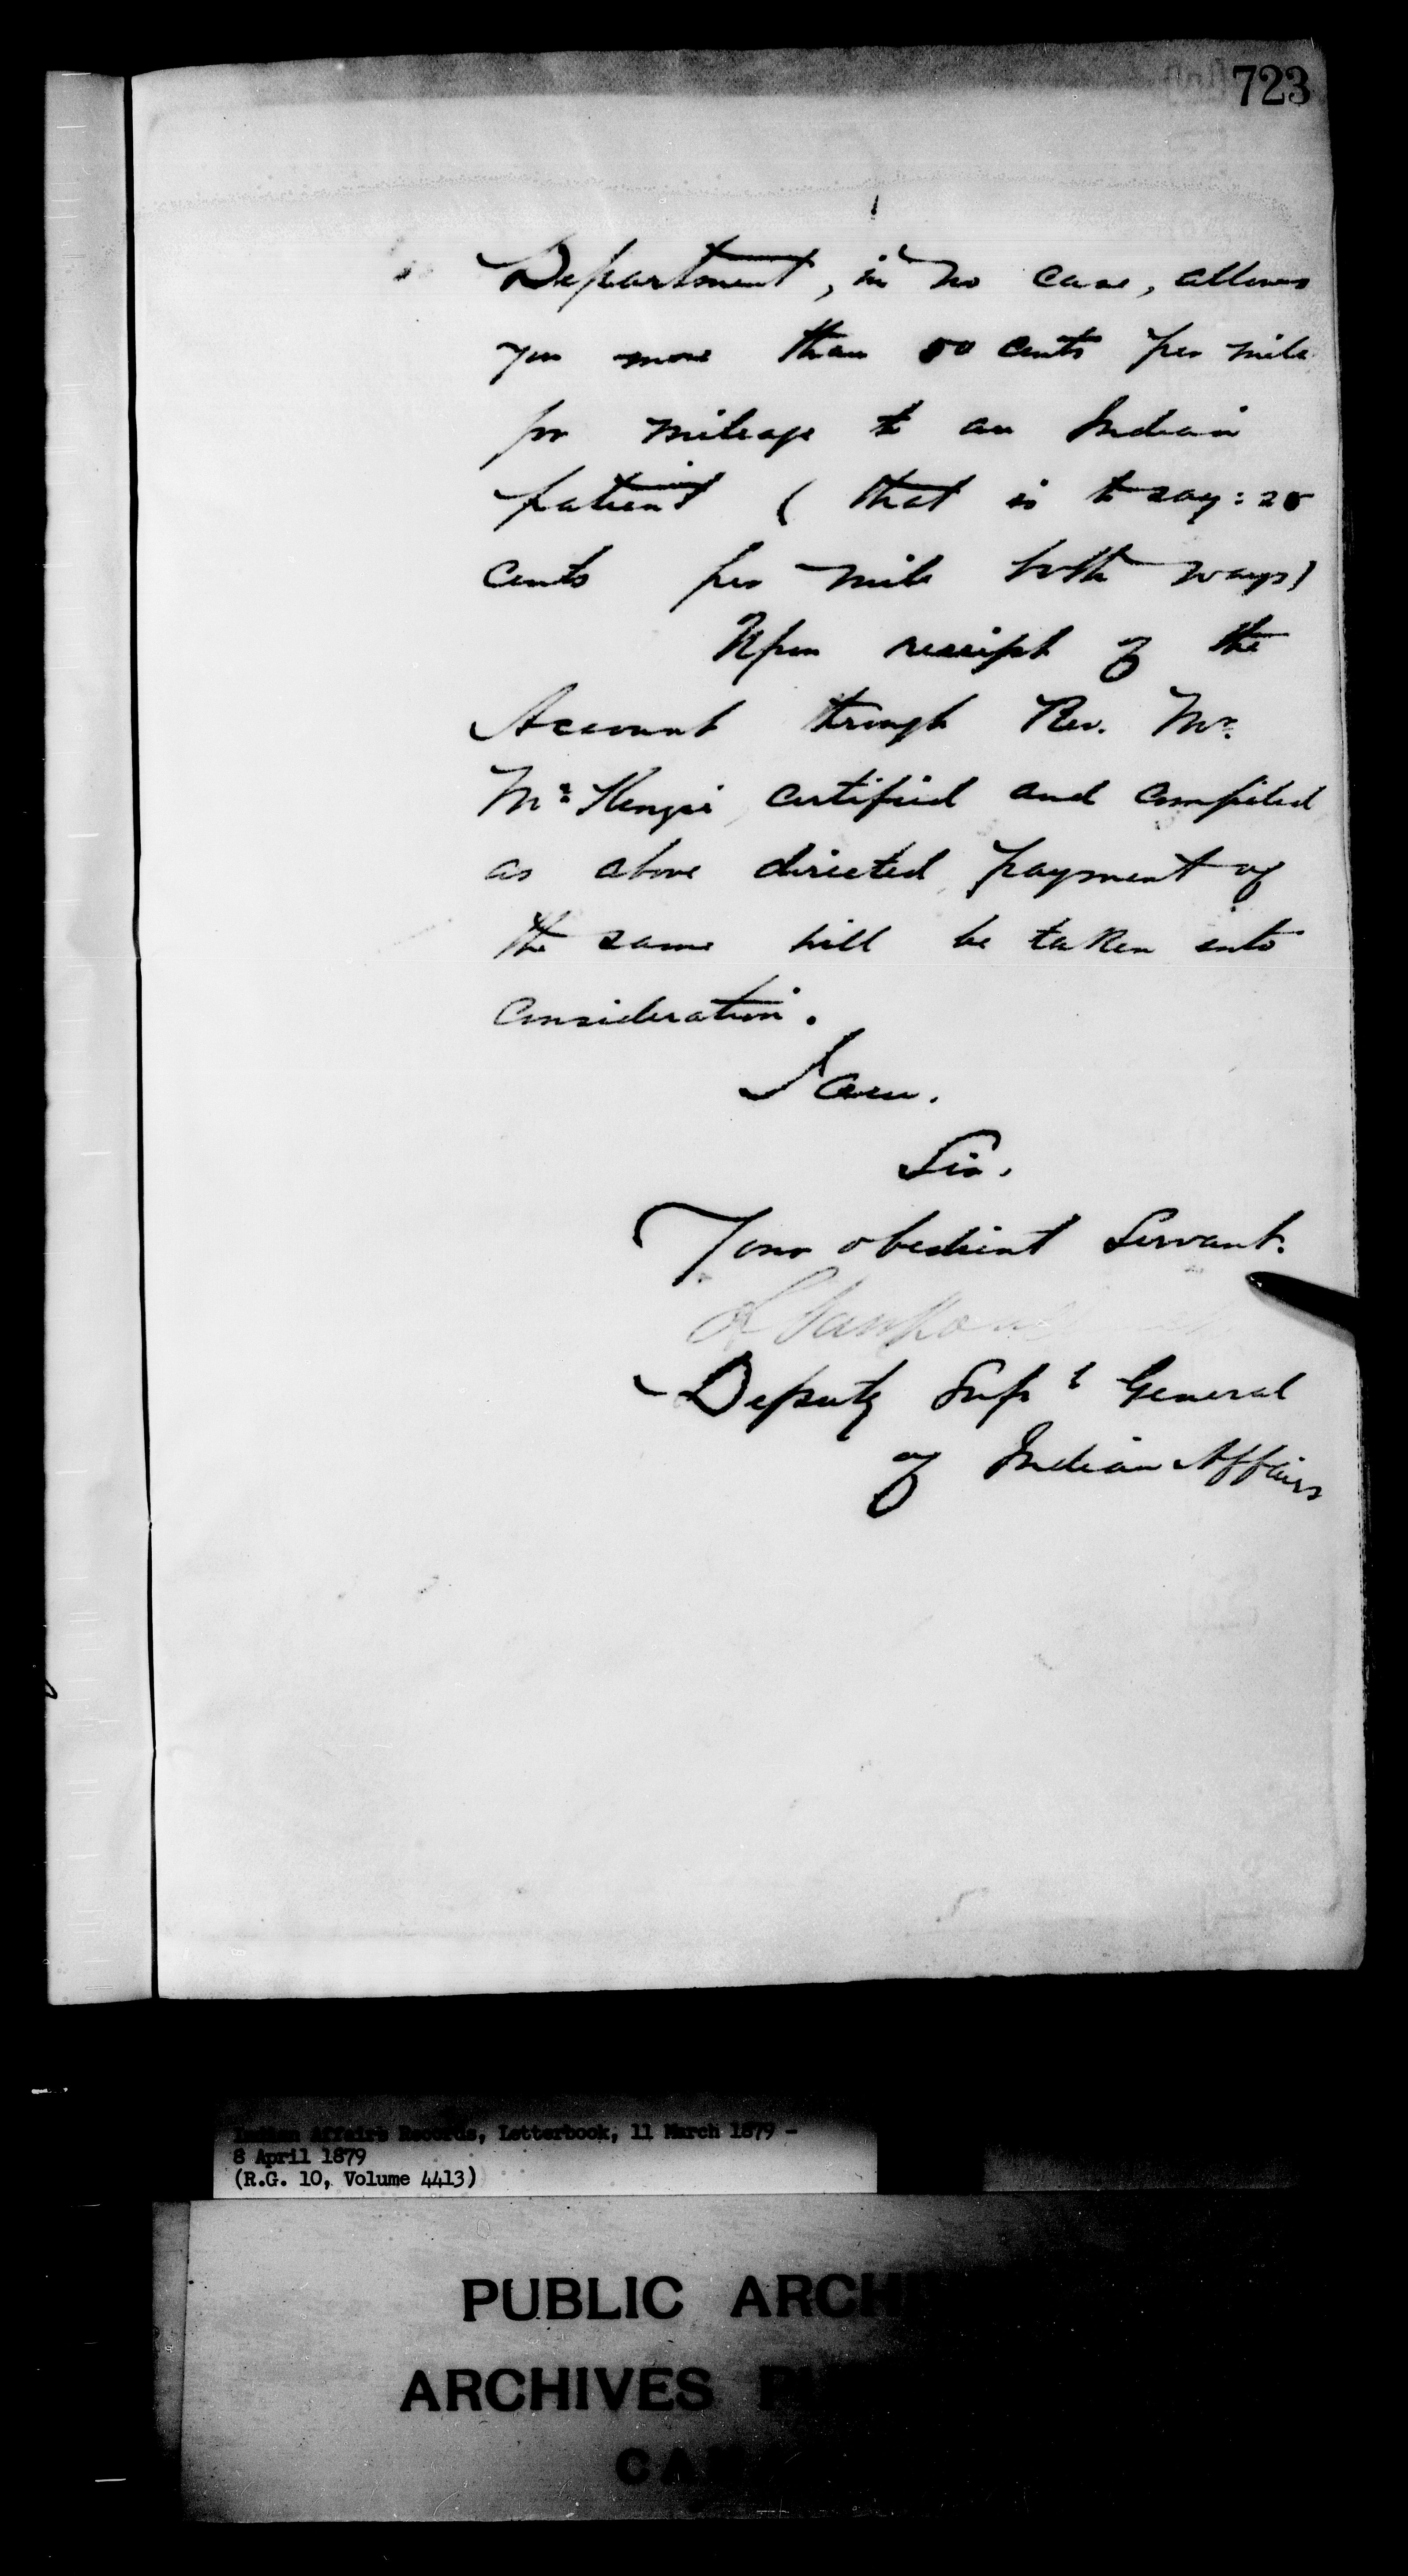 723
Department, in no case, allows
you more than 50 cents per mile
for mileage to an Indian
patient ( that is to say: 25
cents per mile both ways)
Upon receipt of the
Account through Rev. Mr.
Mc Kenzie, certified and compiled
as above directed, payment of
the same will be taken into
consideration.
I am.
Sir.
Your obedient Servant.
L Vankoughnet
Deputy Supt General
of Indian Affairs
Indian Affairs Records, Letterbook, 11 March 1879 -
8 April 1879
(R.G. 10, Volume 4413)
PUBLIC ARCH
ARCHIVES PU
CA